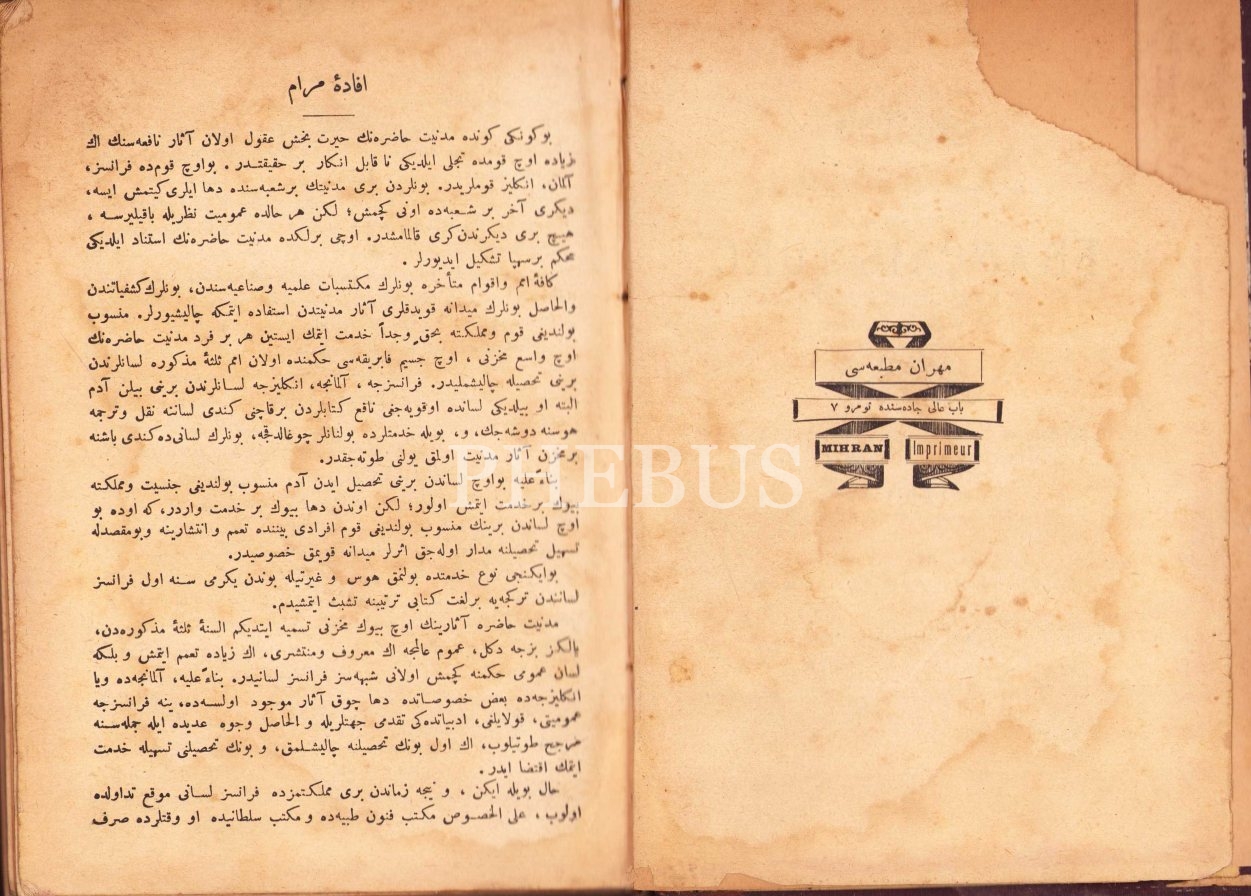 مهران مطبعه‌سی
باب عالی جاده‌سنده نومرو ٧
MIHRAN Imprimeur
افادهٔ مرام
بوكونكی كونده مدنیت حاضره‌نك حیرت بخش عقول اولان آثار نافعه‌سنك اك
زیاده اوچ قومده تجلی ایلدیكی نا قابل انكار بر حقیقتدر. بواوچ قوم‌ده فرانسز،
آلمان، انكلیز قوملریدر. بونلردن بری مدنیتك برشعبه‌سنده دها ایلری كیتمش ایسه،
دیكری آخر بر شعبه‌ده اونی كچمش؛ لكن هر حالده عمومیت نظریله باقیلیرسه،
هیچ بری دیكرندن كری قالمامشدر. اوچی برلكده مدنیت حاضره‌نك استناد ایلدیكی
محكم برسهپا تشكیل ایدیورلر.
كافهٔ امم واقوام متأخره بونلرك مكتسبات علمیه وصناعیه‌سندن، بونلرك كشفیاتندن
والحاصل بونلرك میدانه قویدقلری آثار مدنیتدن استفاده ایتمكه چالیشیورلر. منسوب
بولندیغی قوم ومملكته بحق وجداً خدمت ایتمك ایستین هر بر فرد مدنیت حاضره‌نك
اوچ واسع مخزنی، اوچ جسیم فابریقه‌سی حكمنده اولان امم ثلثهٔ مذكوره لسانلرندن
برینی تحصیله چالیشملیدر. فرانسزجه، آلمانجه، انكلیزجه لسانلرندن برینی بیلن آدم
البته او بیلدیكی لسانده اوقویه‌جغی نافع كتابلردن برقاچنی كندی لساننه نقل وترجمه
هوسنه دوشه‌جك، و، بویله خدمتلرده بولنانلر چوغالدقجه، بونلرك لسانی‌ده كندی باشنه
برمخزن آثار مدنیت اولمق یولنی طوته‌جقدر.
بناءً علیه بواوچ لساندن برینی تحصیل ایدن آدم منسوب بولندیغی جنسیت ومملكته
بیوك برخدمت ایتمش اولور؛ لكن اوندن دها بیوك بر خدمت واردر، كه اوده بو
اوچ لساندن برینك منسوب بولندیغی قوم افرادی بیننده تعمم وانتشارینه وبومقصدله
تسهیل تحصیلنه مدار اوله‌جق اثرلر میدانه قویمق خصوصیدر.
بوایكنجی نوع خدمتده بولنمق هوس و غیرتیله بوندن یكرمی سنه اول فرانسز
لسانندن تركجه‌یه برلغت كتابی ترتیبنه تشبث ایتمشیدم.
مدنیت حاضره آثارینك اوچ بیوك مخزنی تسمیه ایتدیكم السنهٔ ثلثهٔ مذكوره‌دن،
یالكز بزجه دكل، عموم عالمجه اك معروف ومنتشری، اك زیاده تعمم ایتمش وبلكه
لسان عمومی حكمنه كچمش اولانی شبهه‌سز فرانسز لسانیدر. بناءً علیه، آلمانجه‌ده ویا
انكلیزجه‌ده بعض خصوصاتده دها چوق آثار موجود اولسه‌ده، ینه فرانسزجه
عمومیتی، قولایلغی، ادبیاتده‌كی تقدمی جهتلریله والحاصل وجوه عدیده ایله جمله‌سنه
مرجح طوتیلوب، اك اول بونك تحصیلنه چالیشلمق، و بونك تحصیلنی تسهیله خدمت
ایتمك اقتضا ایدر.
حال بویله ایكن، و نیجه زماندن بری مملكتمزده فرانسز لسانی موقع تداولده
اولوب، علی الخصوص مكتب فنون طبیه‌ده و مكتب سلطانیده او وقتلرده صرف
PHEBUS